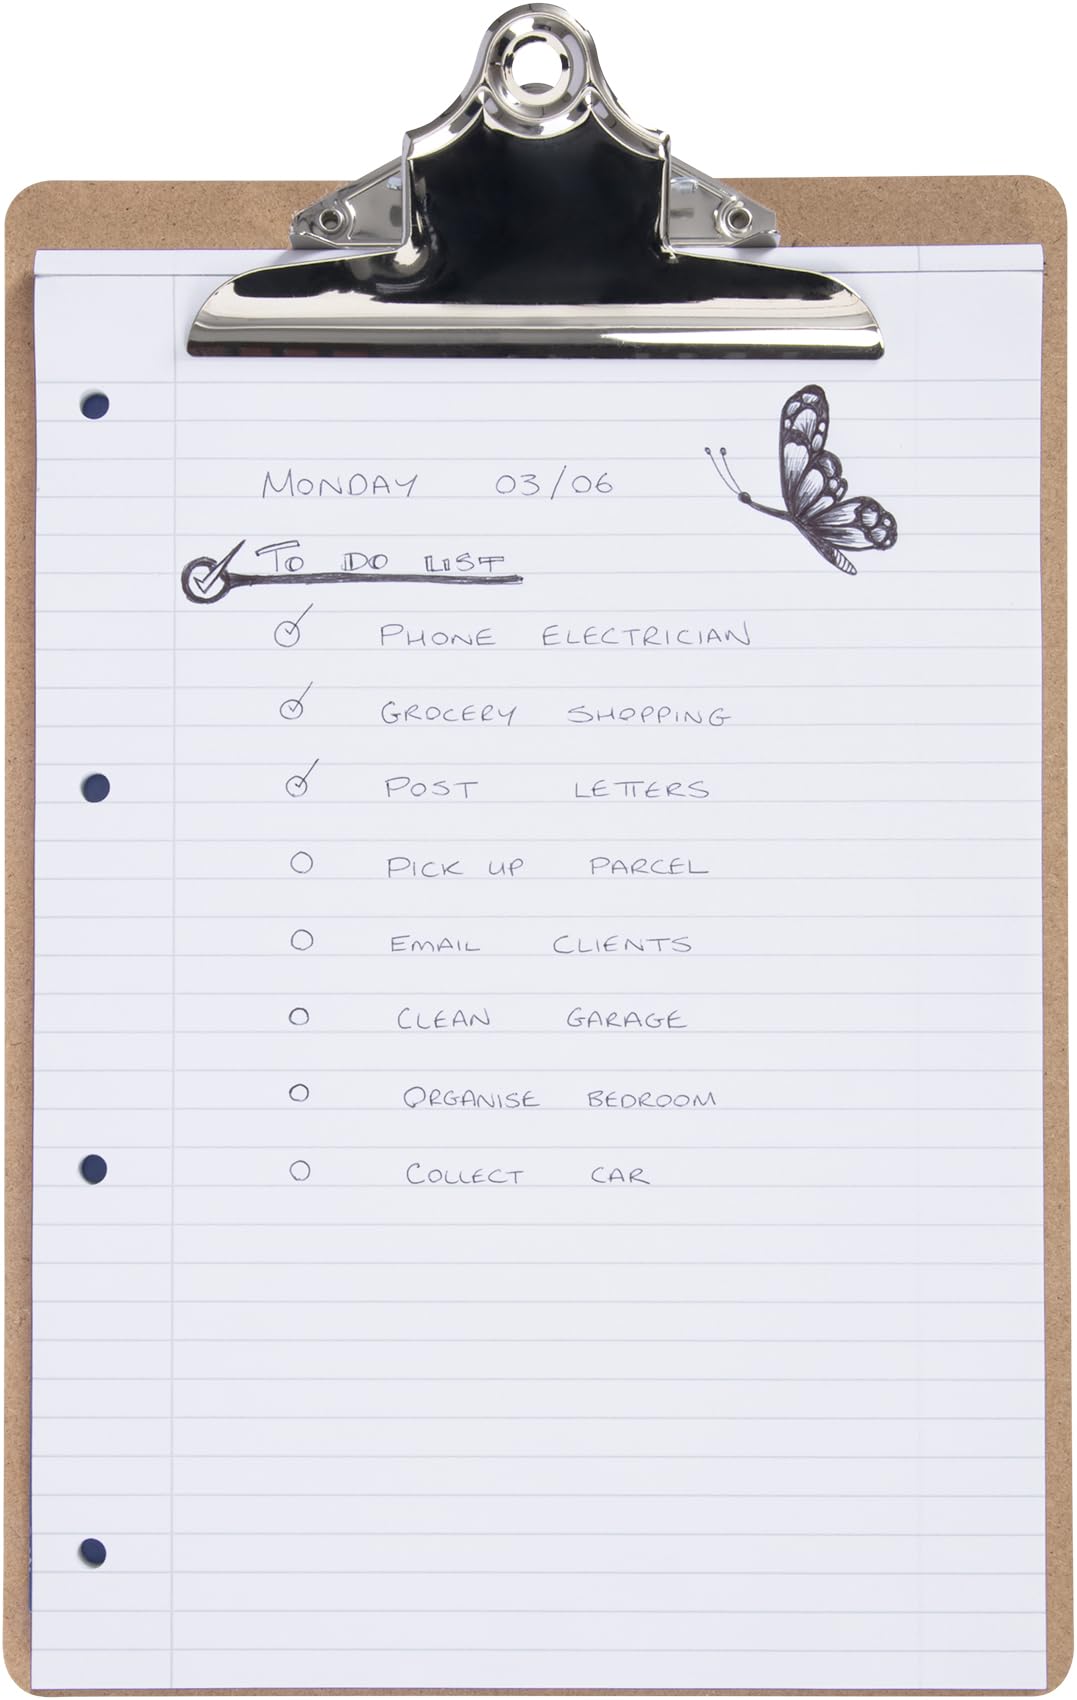 MONDAY 03/06
TO DO LIST
PHONE ELECTRICIAN
GROCERY SHOPPING
POST LETTERS
PICK UP PARCEL
EMAIL CLIENTS
CLEAN GARAGE
ORGANISE BEDROOM
COLLECT CAR